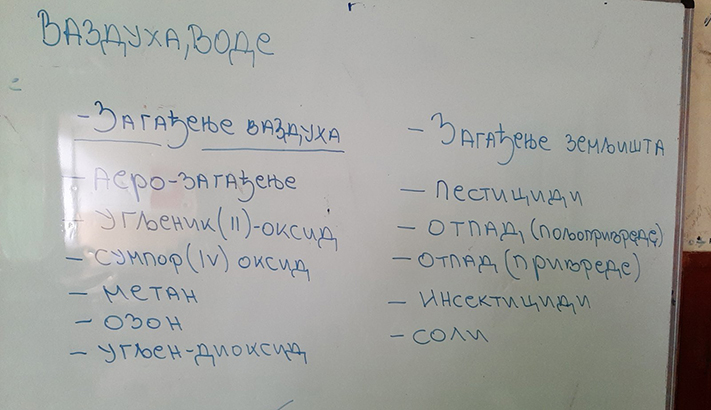 ВАЗДУХА, ВОДЕ
- ЗАГАЂЕЊЕ ВАЗДУХА
- АЕРО-ЗАГАЂЕЊЕ
- УГЉЕНИК(II)-ОКСИД
- СУМПОР(IV) ОКСИД
- МЕТАН
- ОЗОН
- УГЉЕН-ДИОКСИД
- ЗАГАЂЕЊЕ ЗЕМЉИШТА
- ПЕСТИЦИДИ
- ОТПАД (ПОЉОПРИВРЕДЕ)
- ОТПАД (ПРИВРЕДЕ)
- ИНСЕКТИЦИДИ
- СОЛИ